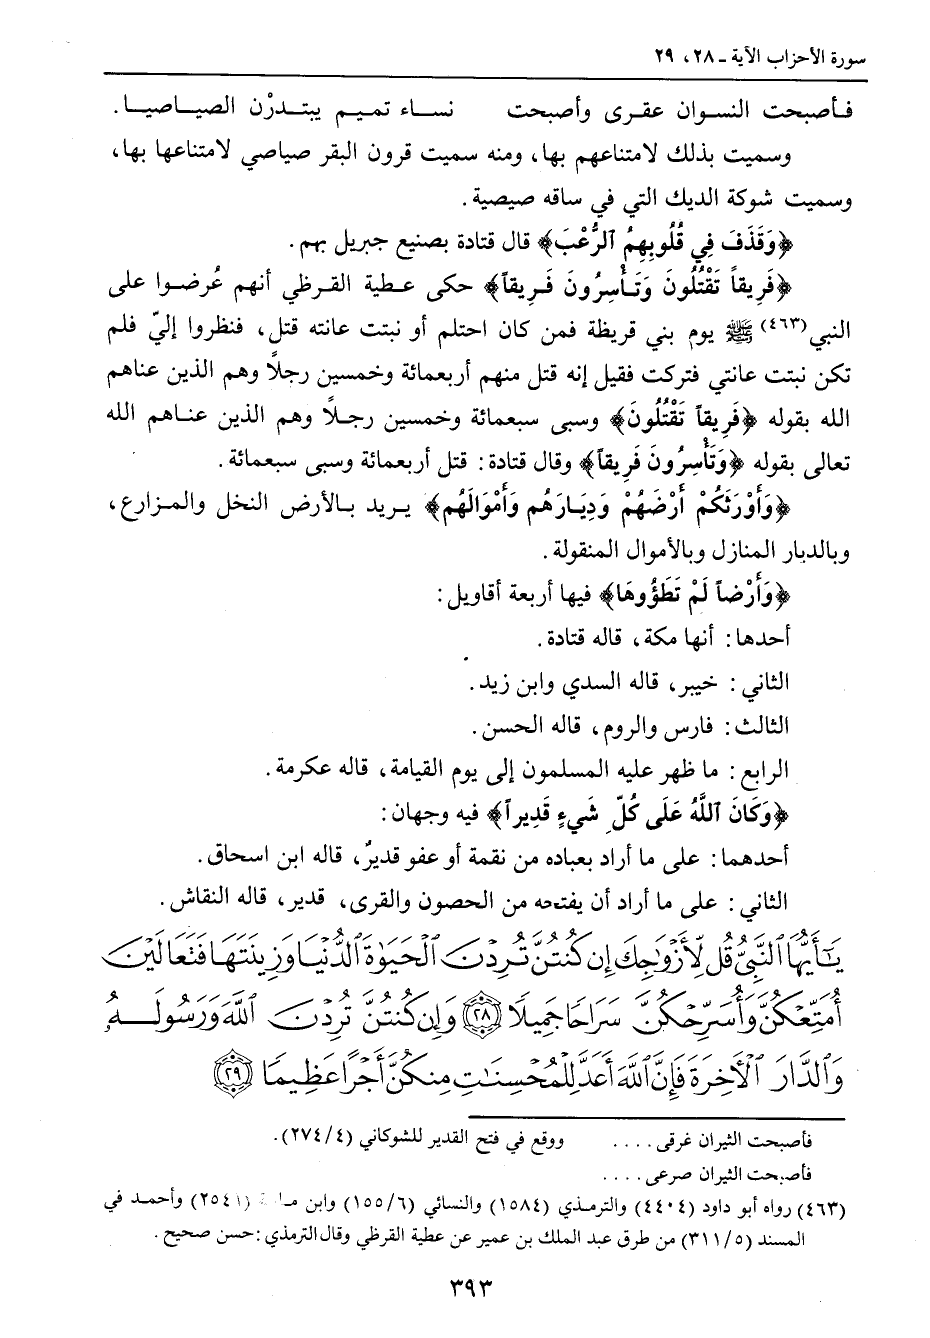 سورة الأحزاب الآية ـ ٢٨، ٢٩
فـأصبحت النسـوان عقـرى وأصبحت نسـاء تميـم يبتـدرْن الصيـاصيـا.
وسميت بذلك لامتناعهم بها، ومنه سميت قرون البقر صياصي لامتناعها بها،
وسميت شوكة الديك التي في ساقه صيصية.
﴿وَقَذَفَ فِي قُلُوبِهِمُ ٱلرُّعْبَ﴾ قال قتادة بصنيع جبريل بهم.
﴿فَرِيقاً تَقْتُلُونَ وَتَـأْسِرُونَ فَـرِيقاً﴾ حكى عـطية القـرظي أنهم عُرضـوا على
النبي(٤٦٣) ﷺ يوم بني قريظة فمن كان احتلم أو نبتت عانته قتل، فنظروا إليّ فلم
تكن نبتت عانتي فتركت فقيل إنه قتل منهم أربعمائة وخمسين رجلاً وهم الذين عناهم
الله بقوله ﴿فَرِيقاً تَقْتُلُونَ﴾ وسبى سبعمائة وخمسين رجـلاً وهم الذين عنـاهم الله
تعالى بقوله ﴿وَتَأْسِرُونَ فَرِيقاً﴾ وقال قتادة: قتل أربعمائة وسبى سبعمائة.
﴿وَأَوْرَثَكُمْ أَرْضَهُمْ وَدِيَـارَهُم وَأَمْوَالَهُم﴾ يـريد بـالأرض النخل والمـزارع،
وبالديار المنازل وبالأموال المنقولة.
﴿وَأَرْضاً لَمْ تَطَؤُوهَا﴾ فيها أربعة أقاويل:
أحدها: أنها مكة، قاله قتادة.
الثاني: خيبر، قاله السدي وابن زيد.
الثالث: فارس والروم، قاله الحسن.
الرابع: ما ظهر عليه المسلمون إلى يوم القيامة، قاله عكرمة.
﴿وَكَانَ ٱللَّهُ عَلَى كُلِّ شَيءٍ قَدِيراً﴾ فيه وجهان:
أحدهما: على ما أراد بعباده من نقمة أو عفو قديرٌ، قاله ابن اسحاق.
الثاني: على ما أراد أن يفتحه من الحصون والقرى، قدير، قاله النقاش.
يَٰٓأَيُّهَا ٱلنَّبِيُّ قُل لِّأَزْوَٰجِكَ إِن كُنتُنَّ تُرِدْنَ ٱلْحَيَوٰةَ ٱلدُّنْيَا وَزِينَتَهَا فَتَعَالَيْنَ
أُمَتِّعْكُنَّ وَأُسَرِّحْكُنَّ سَرَاحًا جَمِيلًا ٢٨ وَإِن كُنتُنَّ تُرِدْنَ ٱللَّهَ وَرَسُولَهُۥ
وَٱلدَّارَ ٱلْأَخِرَةَ فَإِنَّ ٱللَّهَ أَعَدَّ لِلْمُحْسِنَٰتِ مِنكُنَّ أَجْرًا عَظِيمًا ٢٩
فأصبحت الثيران غرقى .... ووقع في فتح القدير للشوكاني (٢٧٤/٤).
فأصبحت الثيران صرعى ....
(٤٦٣) رواه أبو داود (٤٤٠٤) والترمذي (١٥٨٤) والنسائي (١٥٥/٦) وابن (٢٥٤١) وأحمد في
المسند (٣١١/٥) من طرق عبد الملك بن عمير عن عطية القرظي وقال الترمذي: حسن صحيح.
٣٩٣